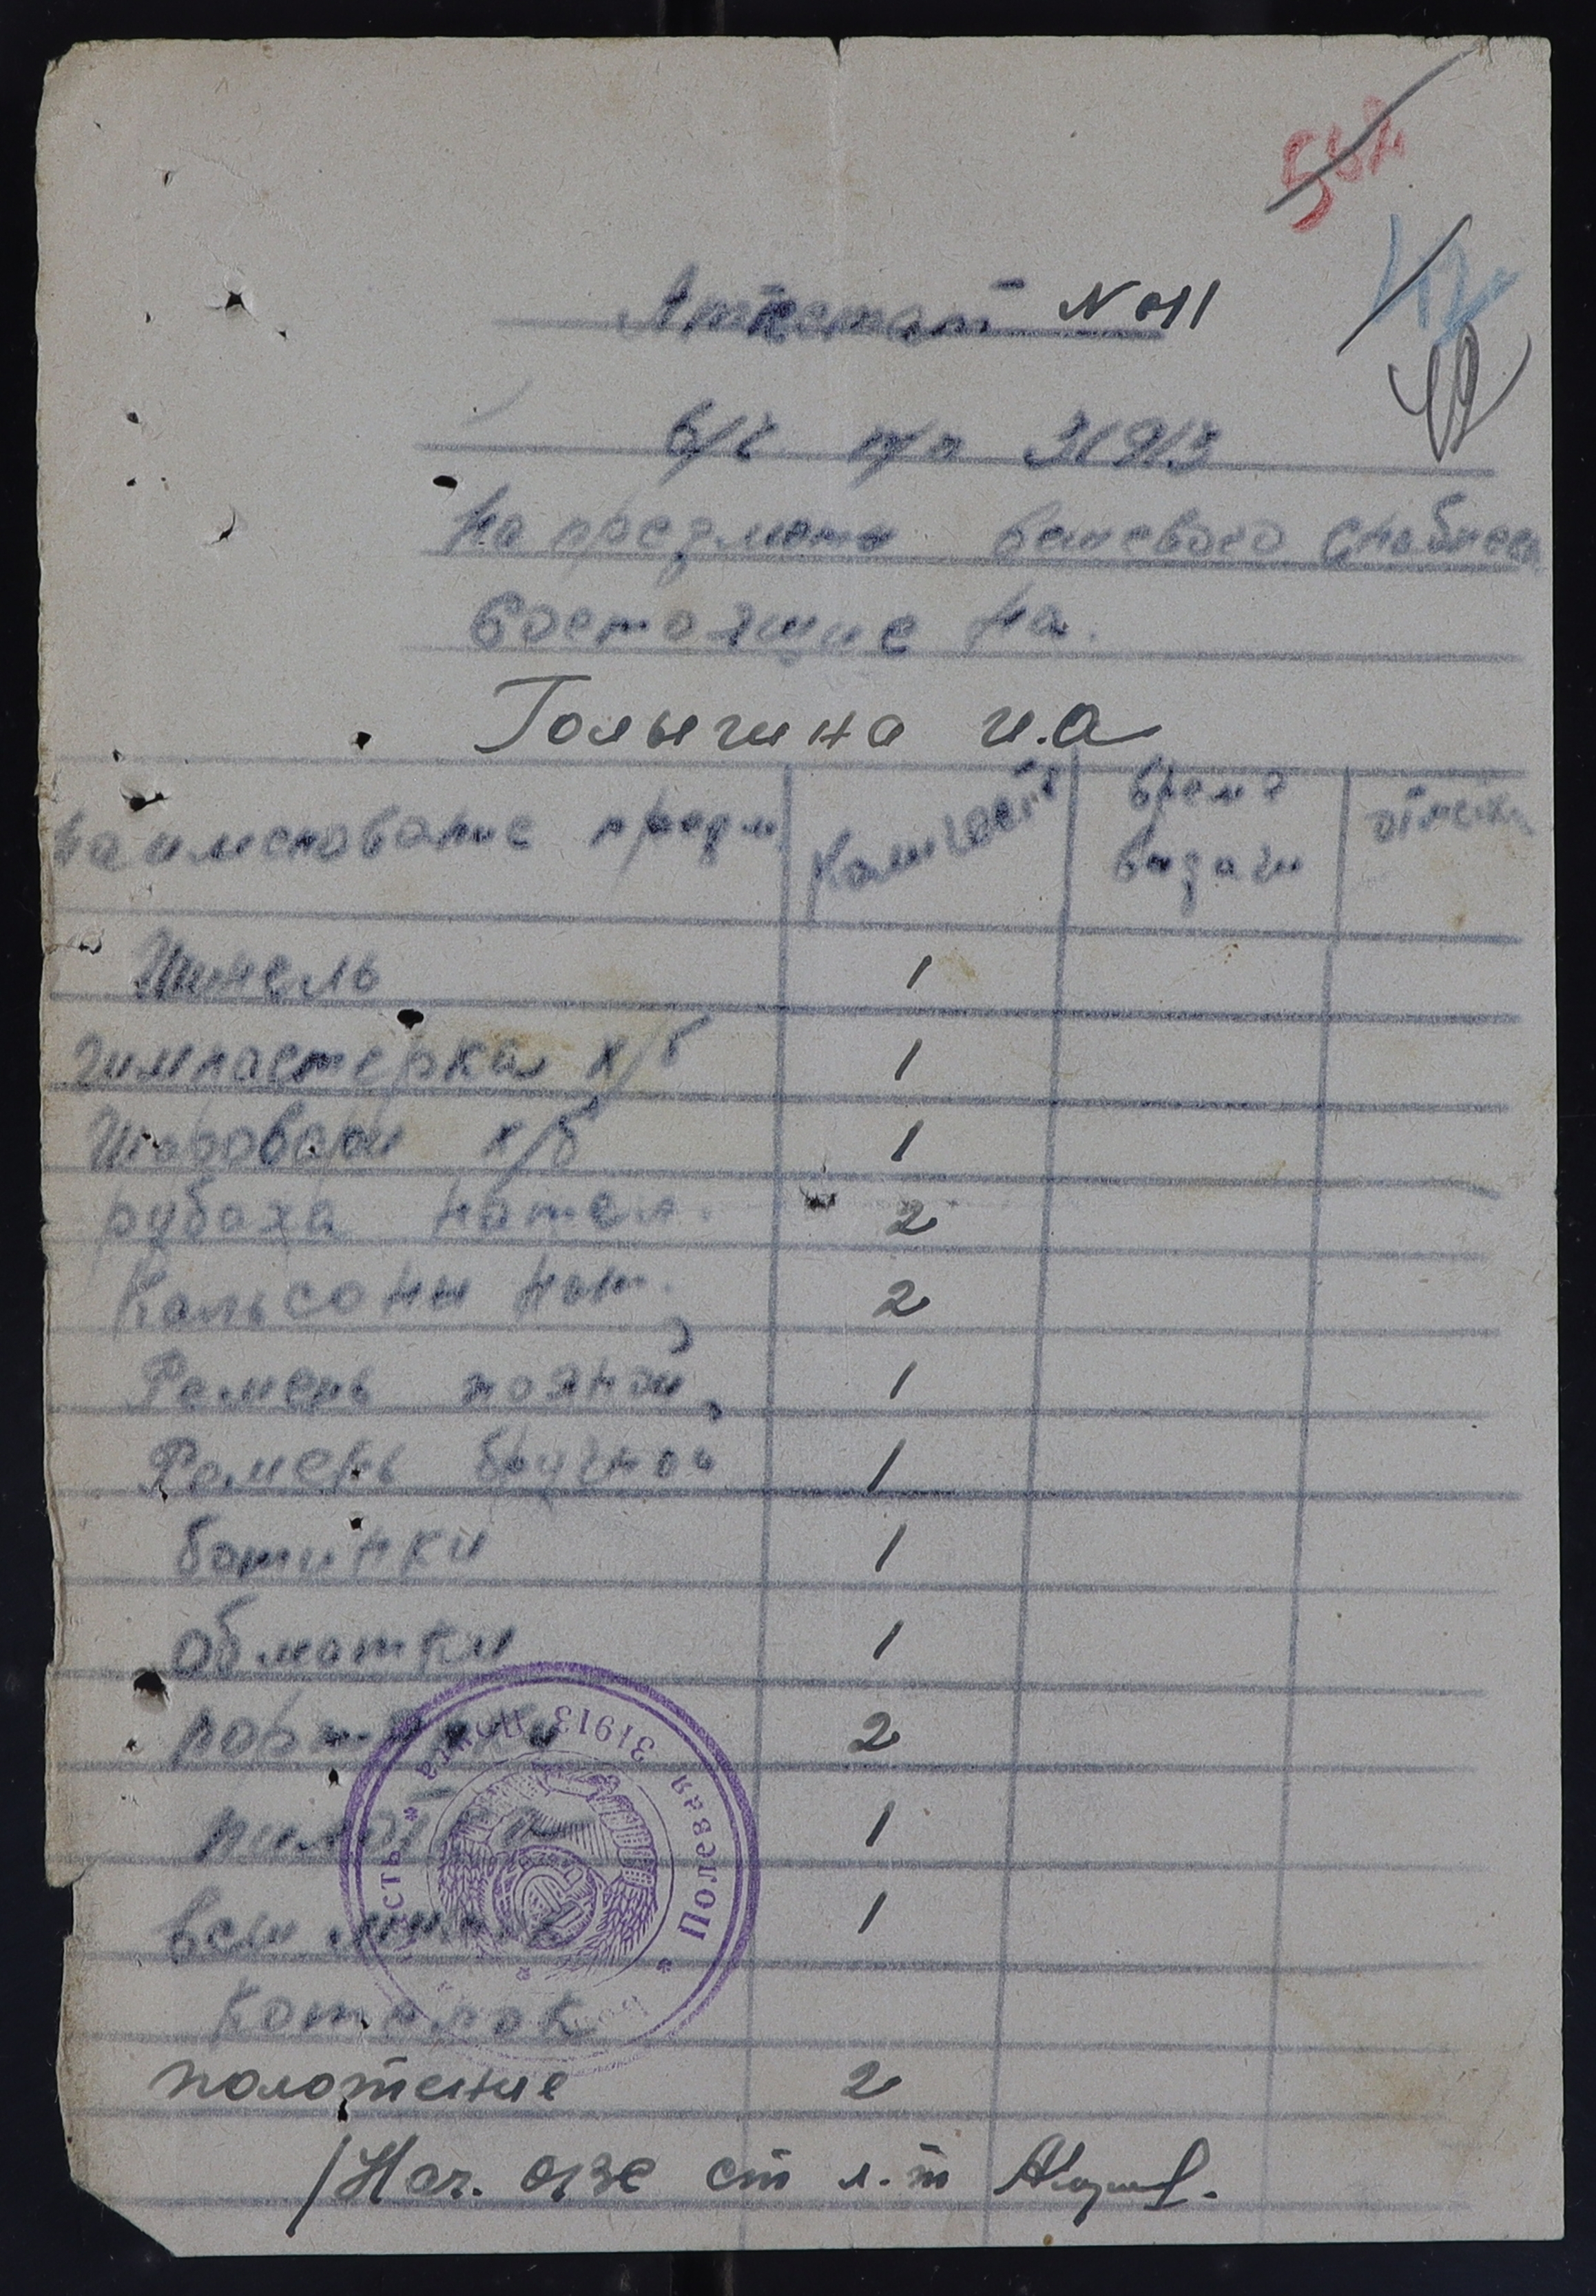 Аттестат N 011
в/ч п/п 31913
на предметы вещевого снабжен
состоящие на.
Голыгина И.А
наименование предм. Количест. время выдачи отметки
Шинель 1
гимнастерка х/б 1
Шаровары х/б 1
рубаха нател. 2
Кальсоны нат. 2
Ремень поясной 1
Ремень брючной 1
ботинки 1
обмотки 1
портянки 2
пилотка 1
вещ. мешок 1
Котелок
полотенце 2
Нач. ОВС ст л-т
Полевая почта 31913